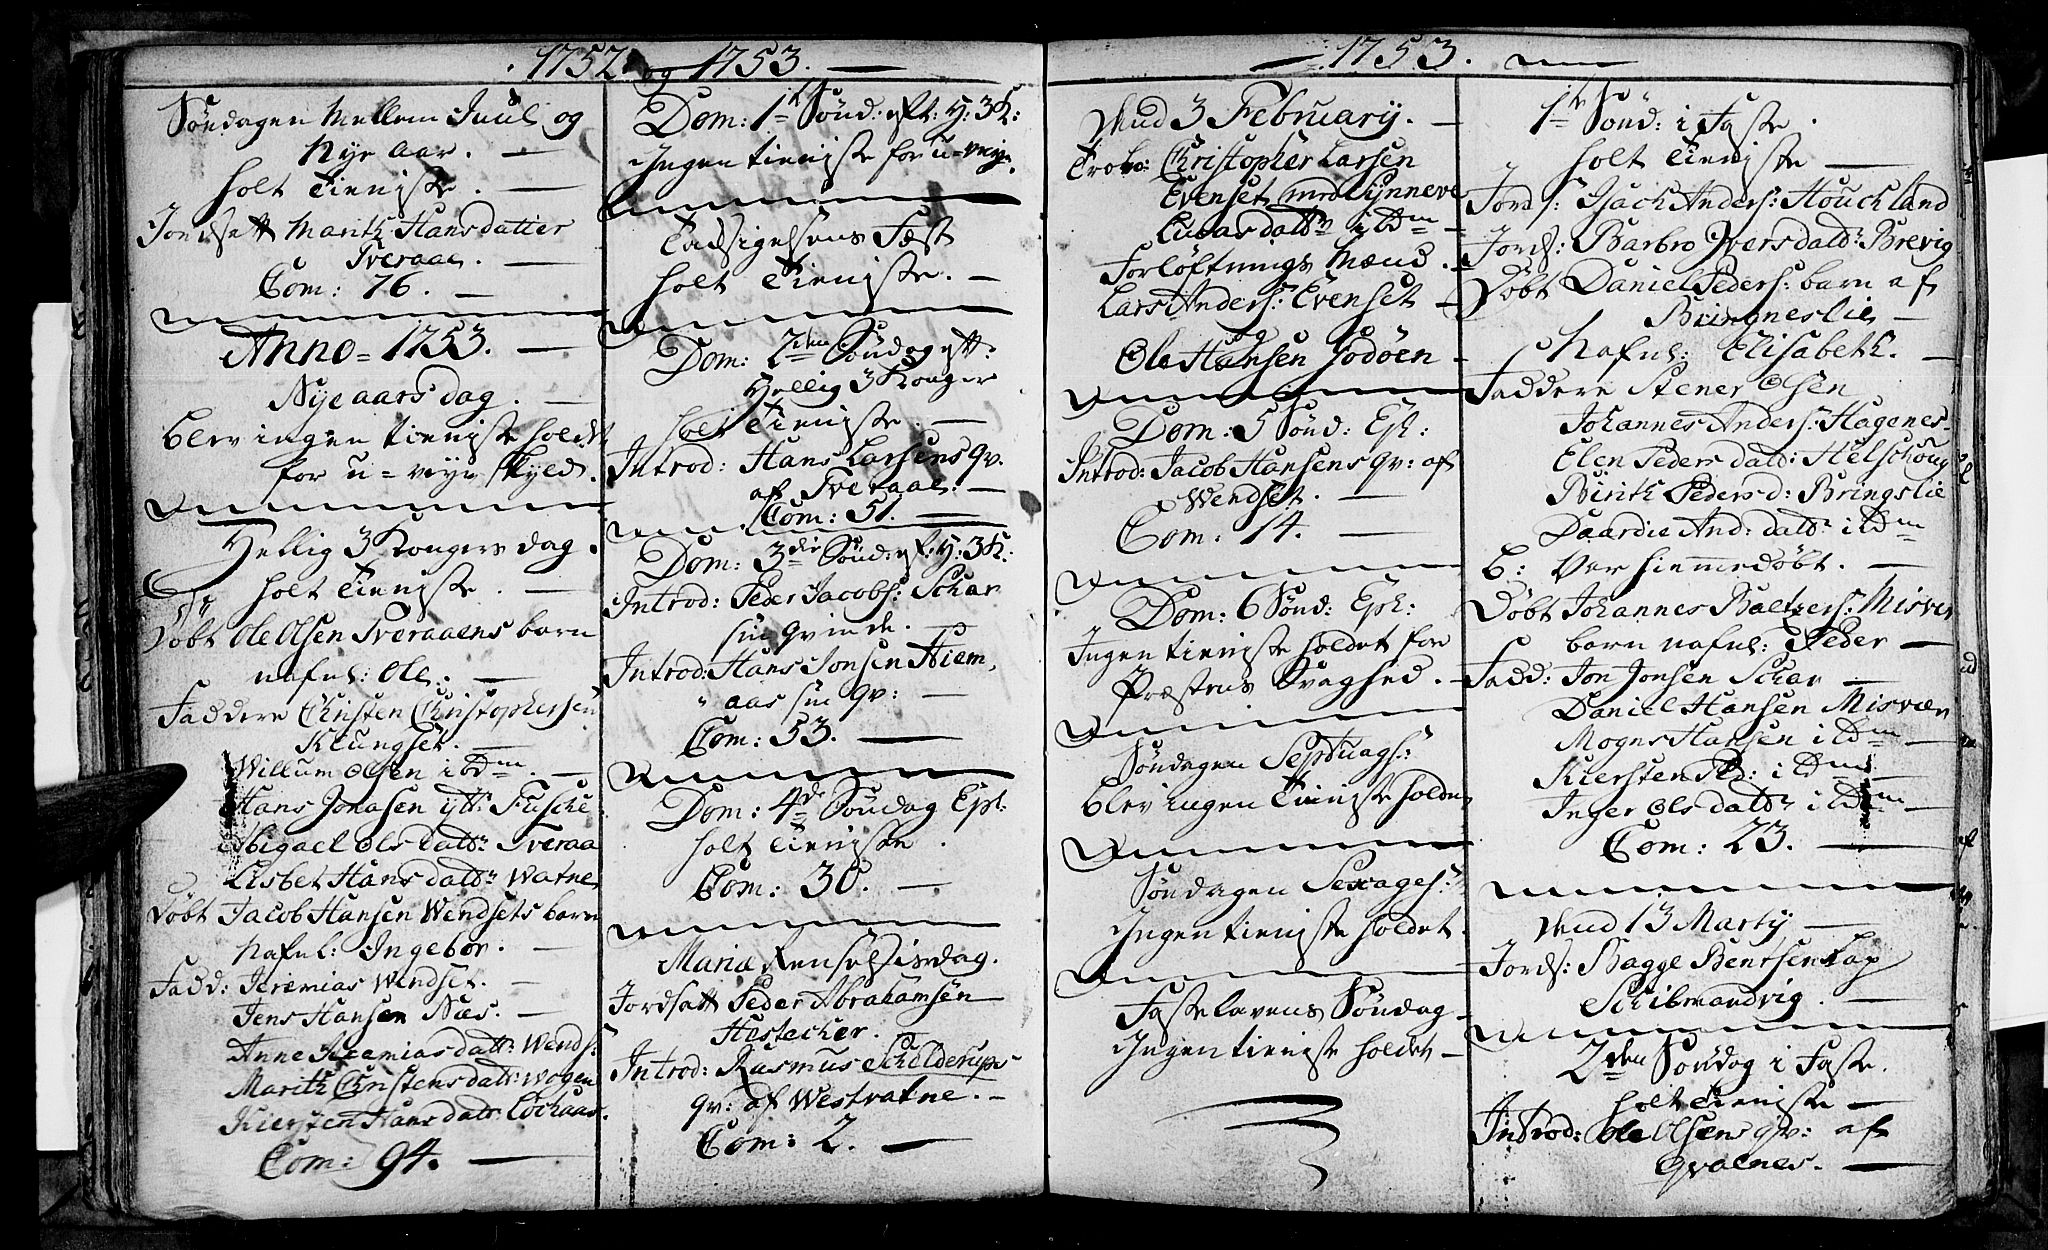 1752 og 1753.
Søndagen Mellem Juul og
Nye Aar.
holt Tieniste.
Jordsatt Marith Hansdatter
Tveraae.
Com: 76.
Anno = 1753.
Nye aars dag.
blev ingen tieniste holdt
for u=veyr skyld.
Hellig 3 Kongers dag.
holt Tieniste.
Døbt Ole Olsen Tveraaens barn
nafnl: Ole.
Faddere Christen Christophersen
Klungset.
Willum Olsen ibdm.
Hans Jonasen ytt: Fusche
Abigael Olsdattr: Tveraa
Lisbet Hansdattr: Watne
Døbt Jacob Hansen Wendsets barn
Nafnl: Ingebor.
Fadd: Jeremias Wendset.
Jens Hansen Næs.
Anne Jeremiasdattr: Wends:
Marith Christensdattr: Wogen
Kiersten Hansdatr:
Com: 94.
Dom: 1te Sønd: eft: H: 3 K:
Ingen tieniste for u=veyr.
Tacksigelsens Fæst
holt Tieniste.
Dom: 2den Søndag eft:
Hellig 3 Konger
holt Tieniste.
Introd: Hans Larsens qv.
af Tveraae.
Com: 51.
Dom: 3die Sønd: ef: H: 3 K:
Introd: Peder Jacobs: Schar
sin Qvinde.
Introd: Hans Jonsen Hiem,,
,,aas sin qv:
Com: 53.
Dom: 4de Søndag Eph:
holt Tieniste.
Com: 30.
Mariæ Renselsisdag.
Jordsatt Peder Abrahamsen
Introd: Rasmus Schelderups
qv: af Westvatne.
Com: 2.
1753.
Mud 3 February.
Trolo: Christopher Larsen
Evenset med Synneve
Lucasdattr ibdm
Forløftnings Mænd.
Lars Anders: Evenset
og
Ole Hansen Godøen
Dom: 5 Sønd: Eph:
Introd: Jacob Hansens qv: af
Wendset.
Com: 14.
Dom: 6 Sønd: Eph:
Ingen tieniste holdet for
Præstens Svaghed.
Søndagen Septuags:
blev ingen Tieniste holden
Søndagen Sexages:
Ingen tieniste holdet.
Fastelavens Søndag
Ingen tieniste holdet
1te Sønd: i Faste.
holt Tieniste
Jords: Isach Anders: Houchland
Jords: Barbro Iversdatr: Brevig
Døbt Daniel Peders: barn af
Bringneslie
Nafnl: Elisabeth.
Faddere Stener Olsen
Johannes Anders: Hagenes
Elen Pedersdatr: Helschoug
Birith Pedersd: Bringslie
Daardie And: datr ibdm
B: Var hiemmedøbt.
Døbt Johannes Baltzers: Misvær
barn nafnl: Peder
Fadd: Jon Jonsen Schar
Daniel Hansen Misvær
Mogns Hansen ibdm
Kiersten Ped: ibdm
Inger Olsdattr ibdm
Com: 23.
Mud 13 Marty
Jords: Bagge Bentsen Lap
2den Søndag i Faste.
holt Tieniste
Introd: Ole Olsens qv: af
Qvalnes.